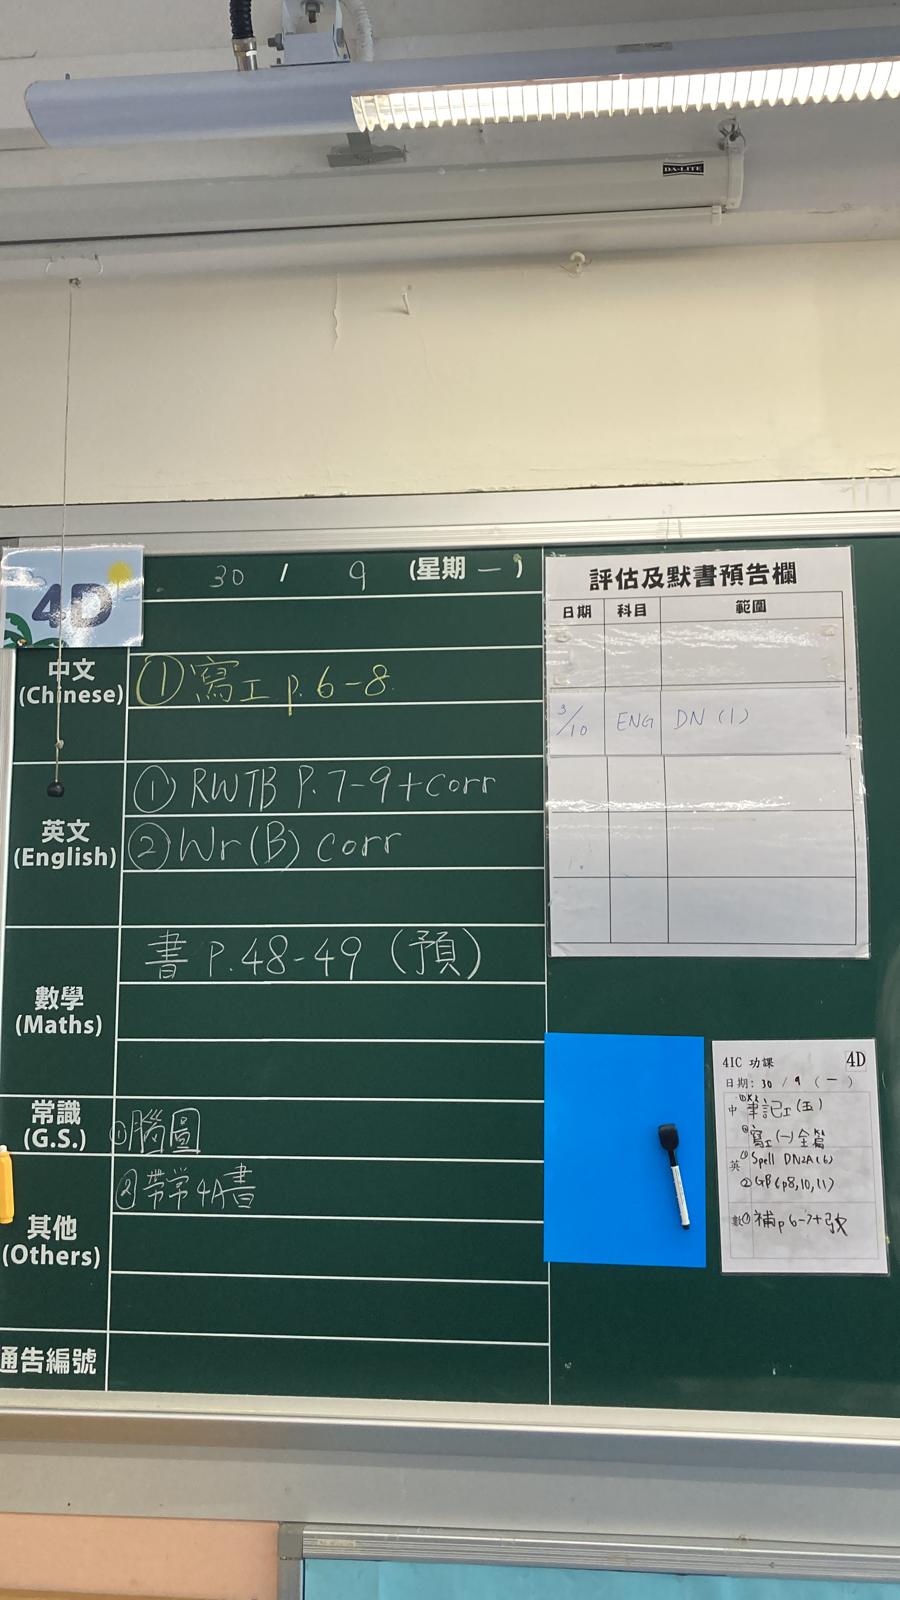 DA-LITE
4D
30 / 9 (星期 一)
中文
(Chinese)
① 寫工 p. 6-8
英文
(English)
① RWTB P. 7-9 + corr
② Wr (B) corr
數學
(Maths)
書 P. 48-49 (預)
常識
(G.S.)
① 腦圖
② 帶常4A書
其他
(Others)
通告編號
評估及默書預告欄
日期 科目 範圍
3/10 ENG DN (1)
4IC 功課 4D
日期: 30 / 9 (一)
中 筆記工(五)
寫工(一)全篇
英 ① Spell DN2A(6)
② GB (p8,10,11)
數 ① 補 p 6-7+